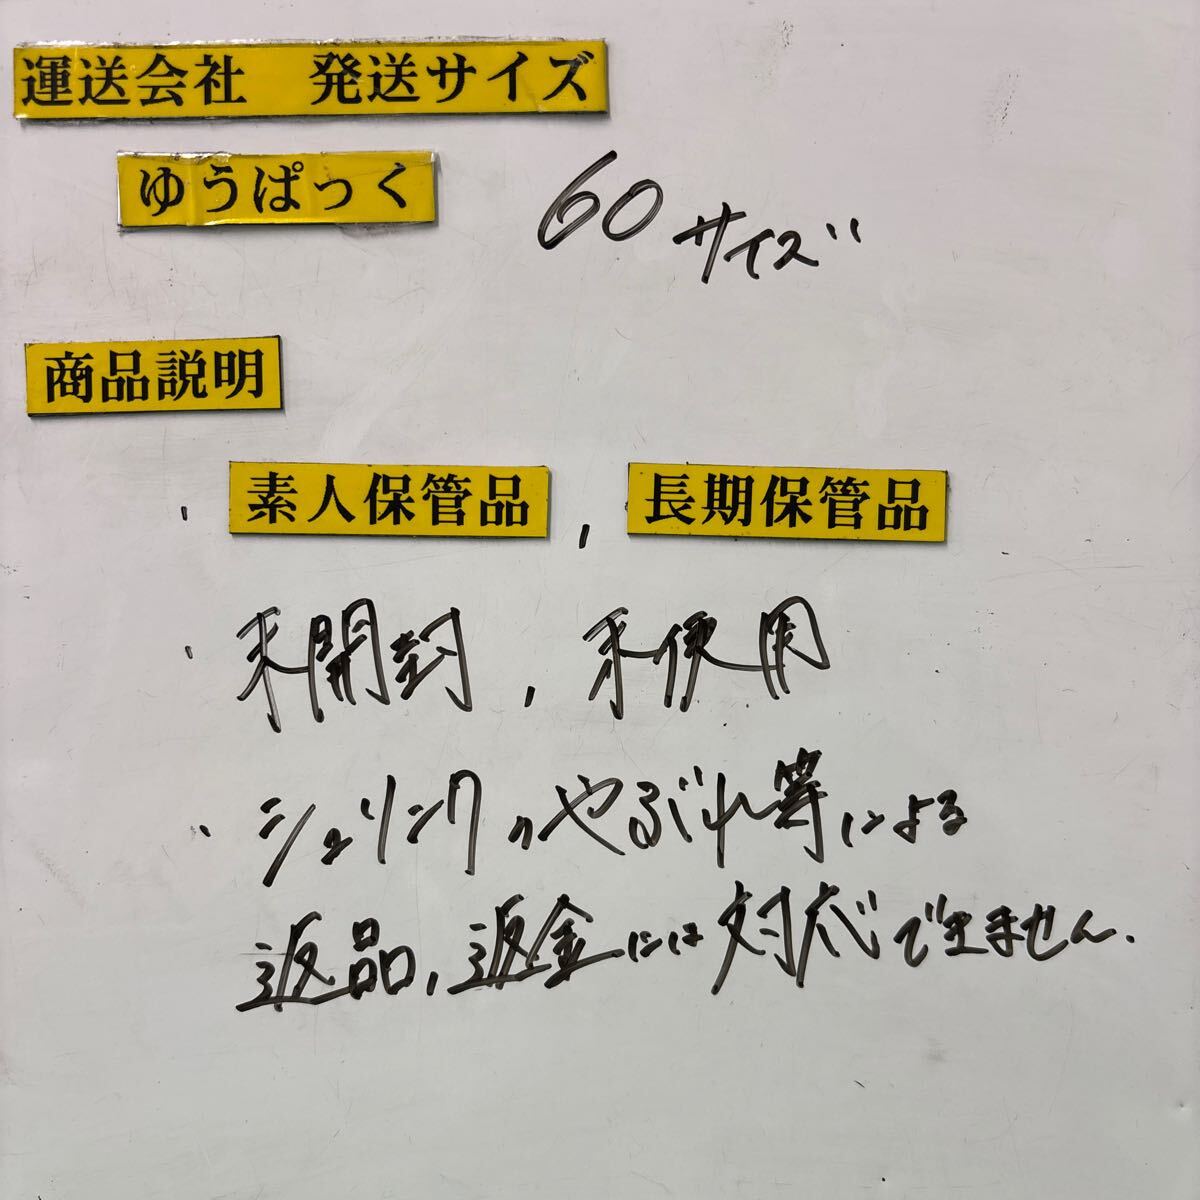 運送会社　発送サイズ
ゆうぱっく 60サイズ
商品説明
・素人保管品，長期保管品
・未開封，未使用
・シュリンクのやぶれ等による
返品，返金には対応できません.